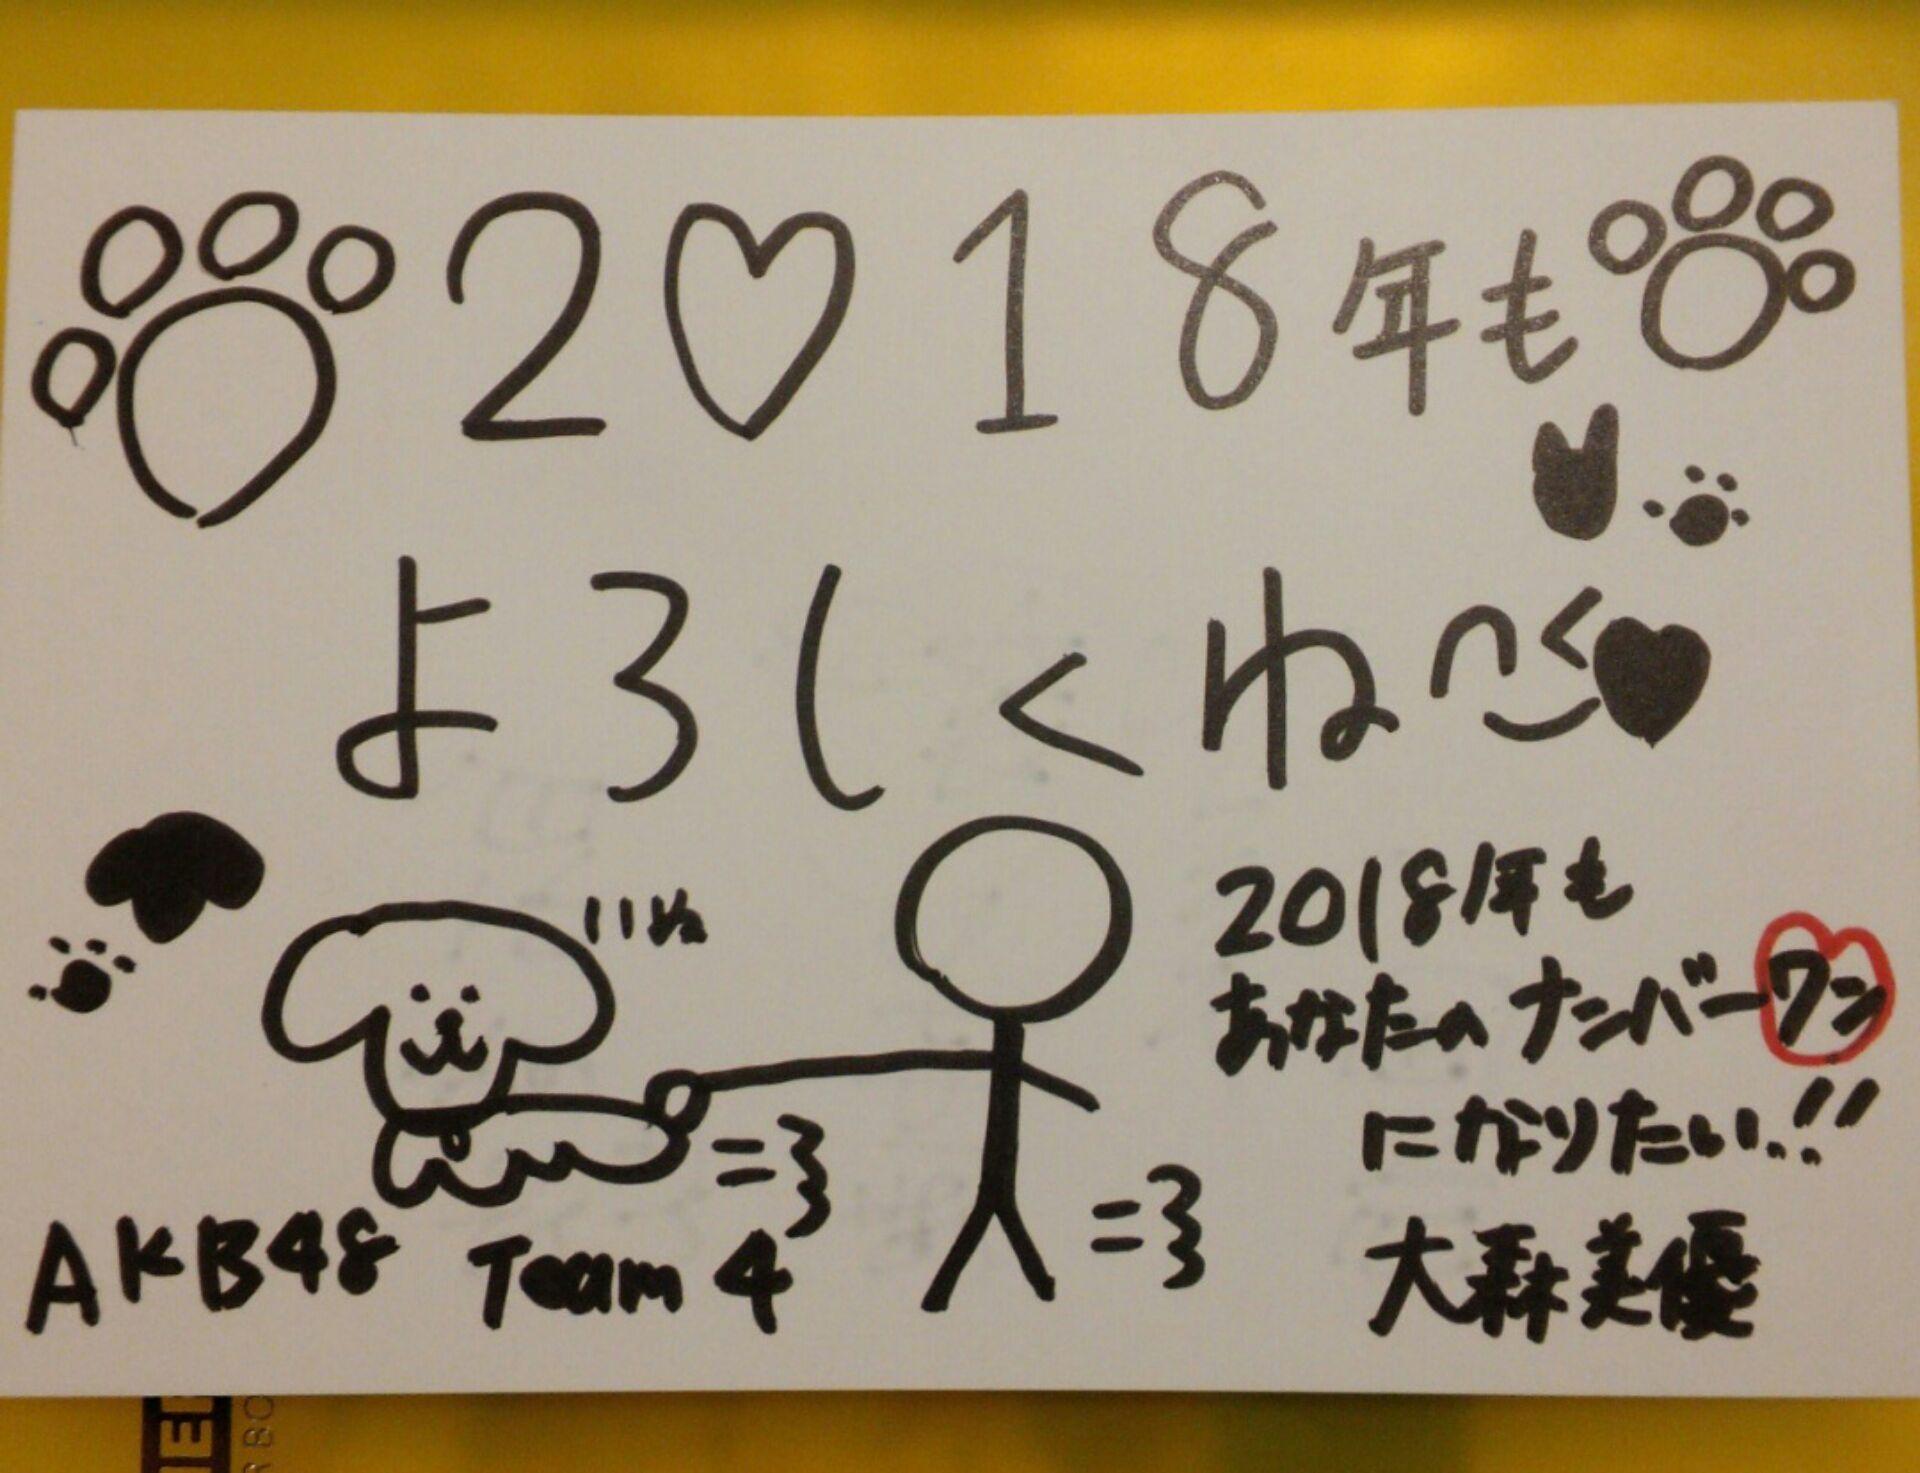 2♡18年も
よろしくね
いぬ
2018年も
あなたの ナンバーワン
になりたい!!
AKB48 Team 4
大森美優